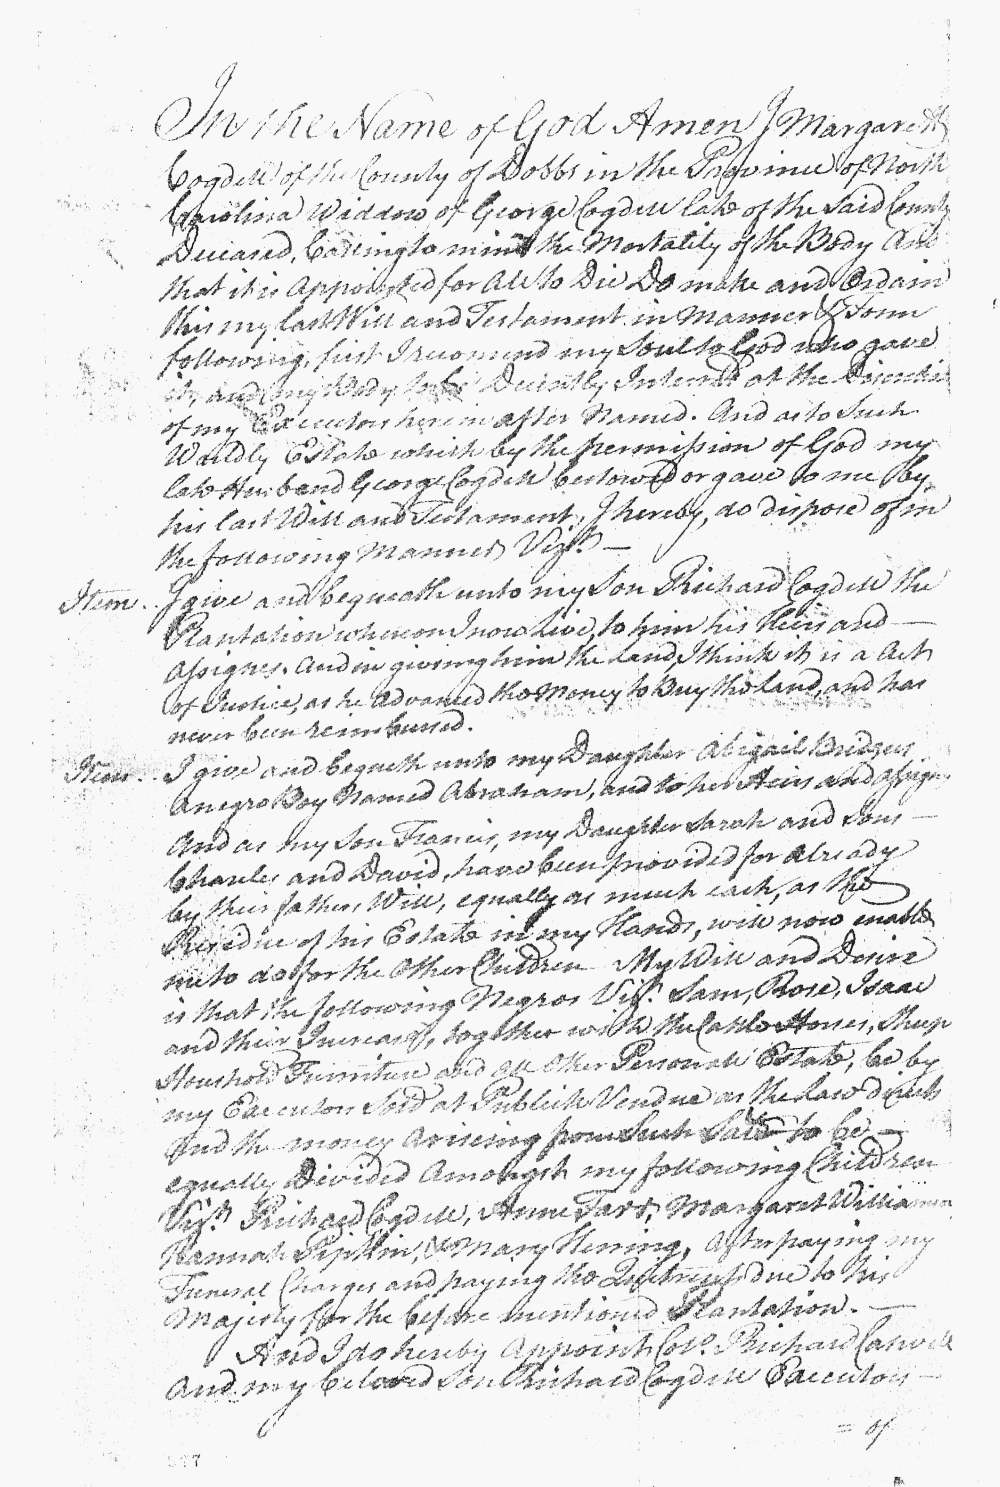 In the Name of God Amen I Margarett
Cogdell of the County of Dobbs in the Province of North
Carolina Widdow of George Cogdell late of the Said County
Deceased, Calling to mind the Mortality of the Body And
that it is Appointed for All to Die Do make and Ordain
this my last Will and Testament in Manner & Form
following, first I recomend my Soul to God who gave
it, and my Body to be Decently Interred at the Discretion
of my Executors herein after Named. And as to Such
Worldly Estate which by the permission of God my
late Husband George Cogdell bestowed or gave to me by
his last Will and Testament, I hereby, do dispose of in
the following Manner Vizt. —
Item. I give and bequeath unto my Son Richard Cogdell the
Plantation whereon I now Live, to him his Heirs and —
Assignes. And in giving him the land, I think it is a Act
of Justice, as he Advanced the Money to Buy the land, and has
never been reimbursed.
Item. I give and bequeth unto my Daughter Abigail Bridges
A negro Boy Named Abraham, and to her Heirs and Assigns
And as my Son Francis, my Daughter Sarah and Sons —
Charles and David, have been provided for already
by their fathers Will, equally as much each, as the
Residue of his Estate in my Hands, will now enable
me to do for the Other Children My Will and Desire
is that the following Negros Vizt. Sam, Rose, Isaac
and their Increase, together with the Cattle Horses, Sheep
Houshold Furniture and all Other Personall Estate, be by
my Executors Sold at Publick Vendue as the Law directs
And the money Ariseing from Such Sale to be —
equally Divided Amongst my following Children
Vizt. Richard Cogdell, Anne Fard, Margaret Williamson
Hannah Pipkin, & Mary Herring, After paying my
Funeral Charges and paying the Quitrents due to his
Majesty for the before mentioned Plantation. —
And I do hereby Appoint Colo. Richard Caswell
And my beloved Son Richard Cogdell Executors —
= of